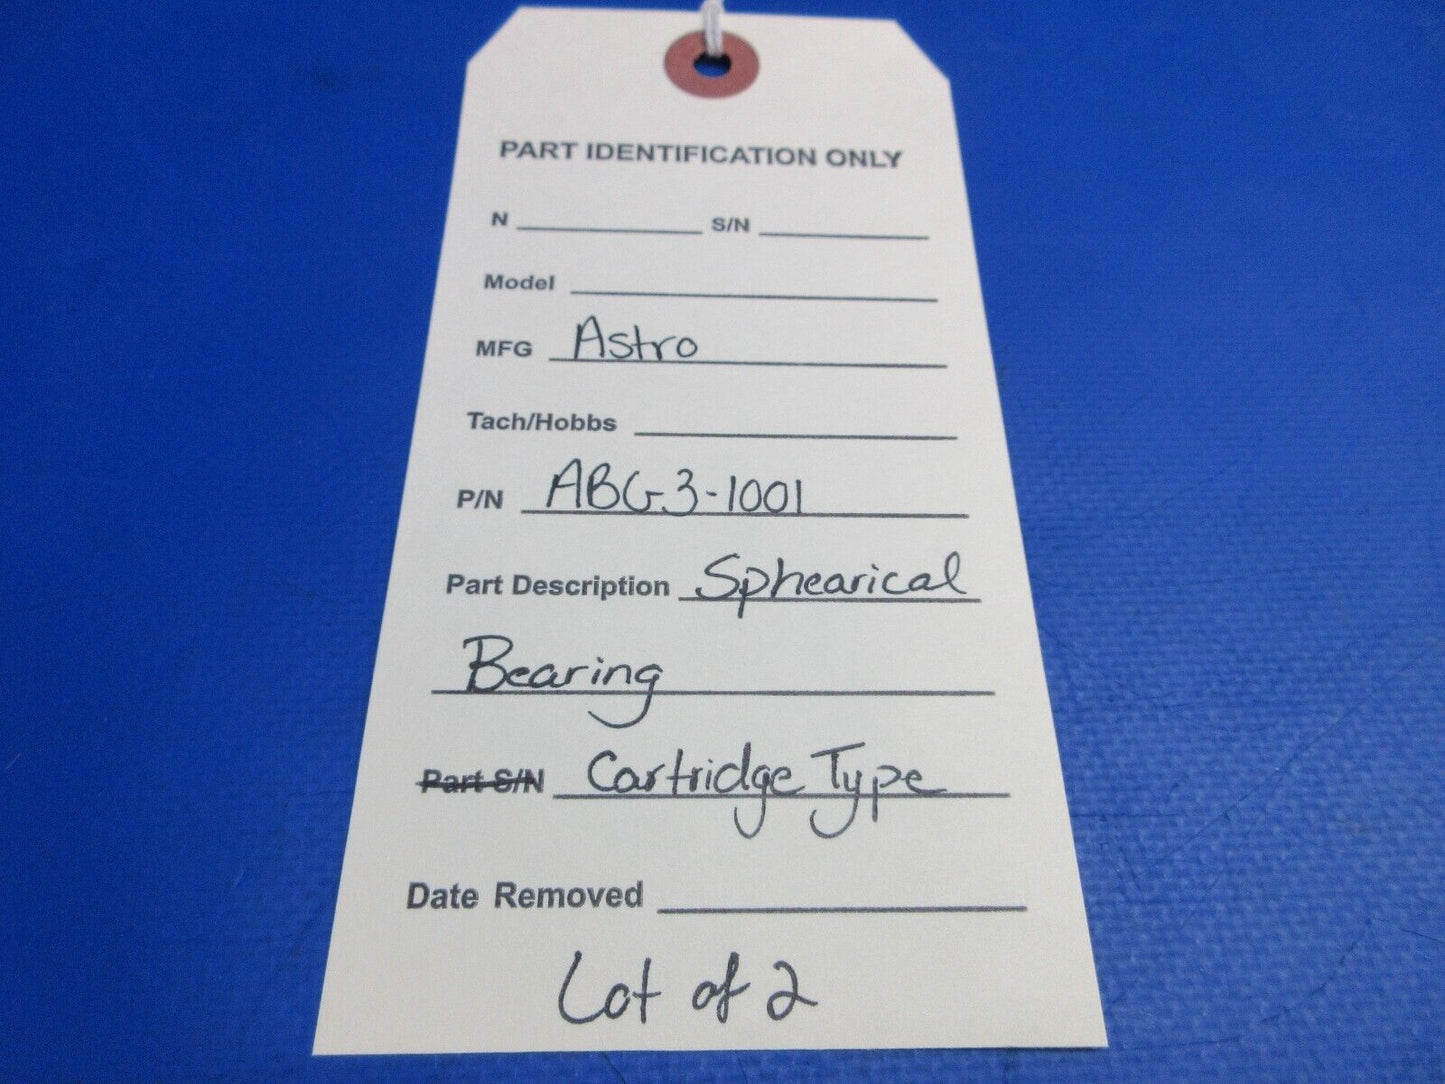 PART IDENTIFICATION ONLY
N ____________ S/N ____________
Model ____________
MFG Astro
Tach/Hobbs ____________
P/N ABG3-1001
Part Description Sphearical
Bearing
Part S/N Cartridge Type
Date Removed ____________
Lot of 2